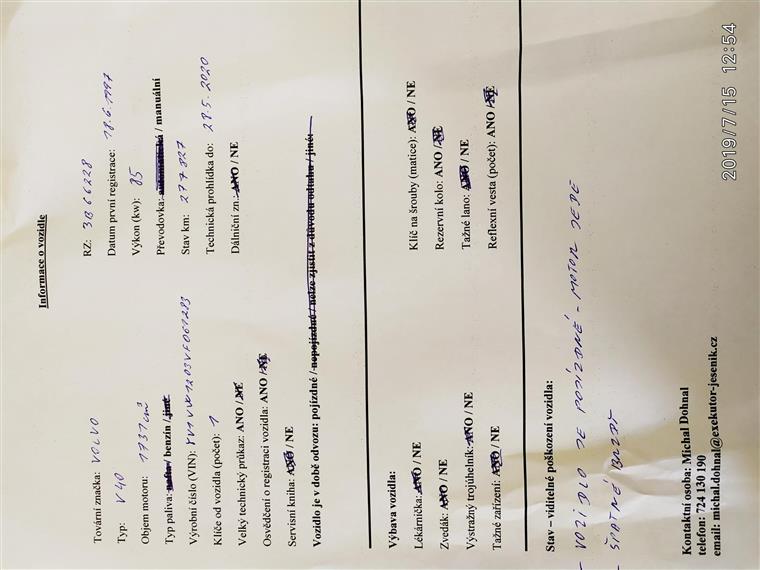 Informace o vozidle
Tovární značka: VOLVO
RZ: 3B66228
Typ: V40
Datum první registrace: 18.6.1997
Objem motoru: 1731 cm³
Výkon (kw): 85
Typ paliva: nafta / benzin / jiné
Převodovka: automatická / manuální
Výrobní číslo (VIN):
Stav km: 277827
Klíče od vozidla (počet): 1
Technická prohlídka do: 28.5.2020
Velký technický průkaz: ANO / NE
Dálniční zn.: ANO / NE
Osvědčení o registraci vozidla: ANO / NE
Servisní kniha: ANO / NE
Vozidlo je v době odvozu: pojízdné / nepojízdné / nelze zjistit z důvodu odtahu / jiné:
Výbava vozidla:
Lékárnička: ANO / NE
Klíč na šrouby (matice): ANO / NE
Zvedák: ANO / NE
Rezervní kolo: ANO / NE
Výstražný trojúhelník: ANO / NE
Tažné lano: ANO / NE
Tažné zařízení: ANO / NE
Reflexní vesta (počet): ANO / NE
Stav – viditelné poškození vozidla:
- VOZIDLO JE POJÍZDNÉ - MOTOR JEDE
- ŠPATNÉ BRZDY
Kontaktní osoba: Michal Dohnal
telefon: 724 130 190
email: michal.dohnal@exekutor-jesenik.cz
2019/7/15 12:54